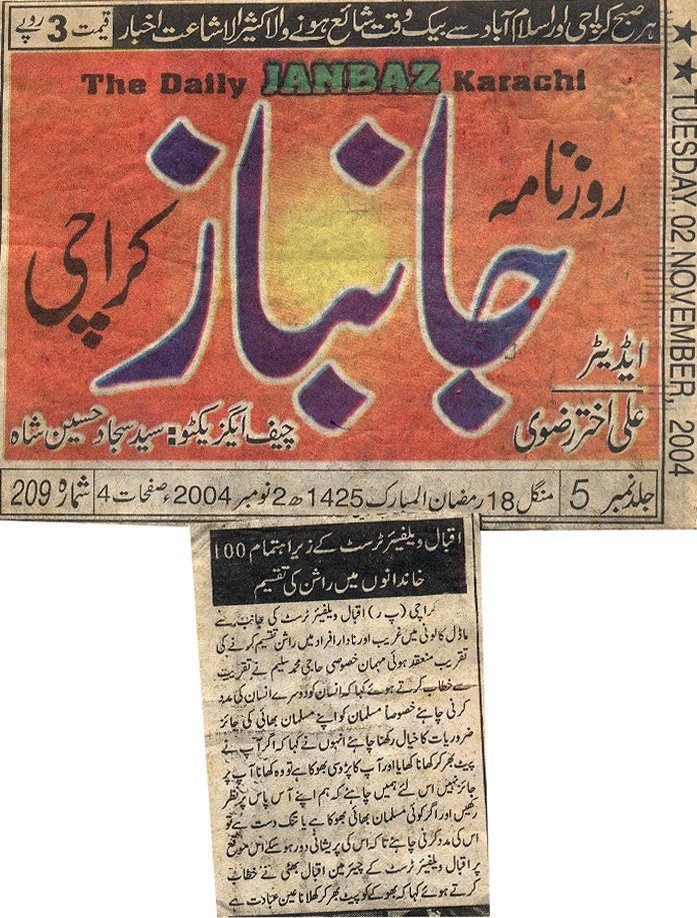 ہر صبح کراچی اور اسلام آباد سے بیک وقت شائع ہونے والا کثیر الاشاعت اخبار
قیمت 3 روپے
The Daily JANBAZ Karachi
روزنامہ
جانباز
کراچی
ایڈیٹر
علی اختر رضوی
چیف ایگزیکٹو: سید سجاد حسین شاہ
TUESDAY, 02 NOVEMBER, 2004
جلد نمبر 5 منگل 18 رمضان المبارک 1425ھ 2 نومبر 2004ء صفحات 4 شمارہ 209
اقبال ویلفیئر ٹرسٹ کے زیر اہتمام 100
خاندانوں میں راشن کی تقسیم
کراچی (پ ر) اقبال ویلفیئر ٹرسٹ کی جانب سے
ماڈل کالونی میں غریب اور نادار افراد میں راشن تقسیم کرنے کی
تقریب منعقد ہوئی مہمان خصوصی حاجی محمد سلیم نے تقریب
سے خطاب کرتے ہوئے کہا کہ انسان کو دوسرے انسان کی مدد
کرنی چاہئے خصوصاً مسلمان کو اپنے مسلمان بھائی کی جائز
ضروریات کا خیال رکھنا چاہئے انہوں نے کہا کہ اگر آپ نے
پیٹ بھر کر کھانا کھایا اور آپ کا پڑوسی بھوکا ہے تو وہ کھانا آپ پر
جائز نہیں اس لئے ہمیں چاہئے کہ ہم اپنے آس پاس پر نظر
رکھیں اور اگر کوئی مسلمان بھائی بھوکا ہے یا تنگ دست ہے تو
اس کی مدد کرنی چاہئے تاکہ اس کی پریشانی دور ہو سکے اس موقع
پر اقبال ویلفیئر ٹرسٹ کے چیئرمین اقبال بھٹی نے خطاب
کرتے ہوئے کہا کہ بھوکے کو پیٹ بھر کر کھلانا عین عبادت ہے